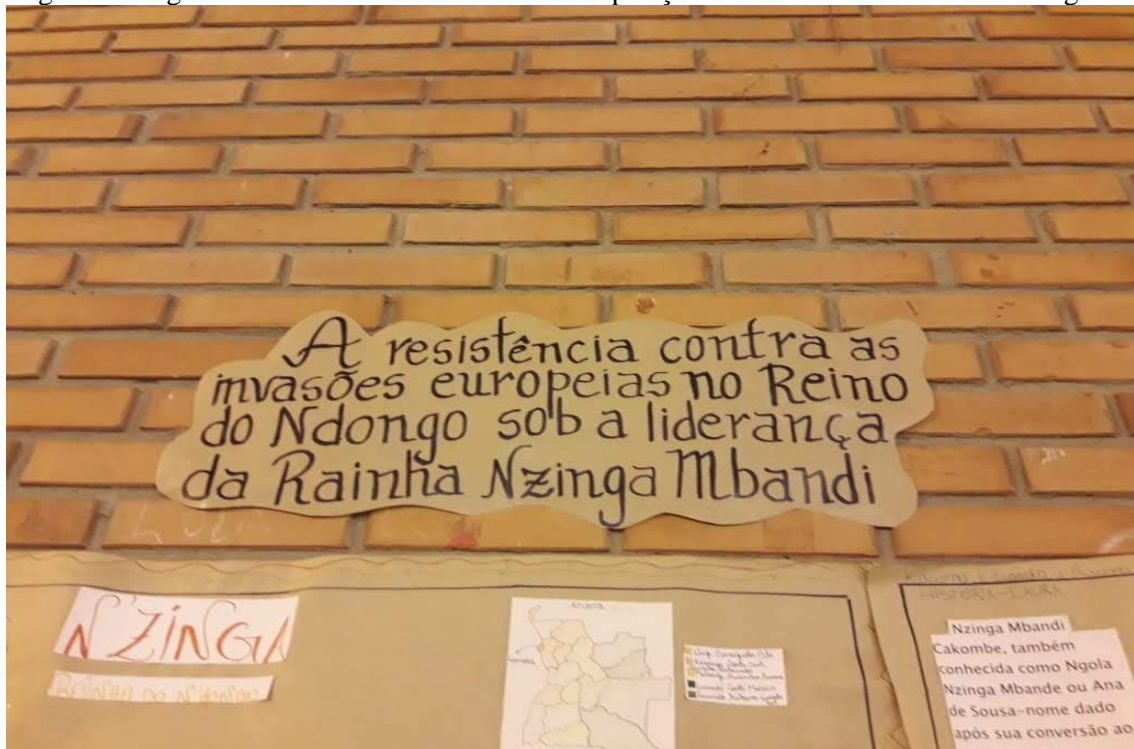 A resistência contra as
invasões europeias no Reino
do Ndongo sob a liderança
da Rainha Nzinga Mbandi
N'ZINGA
RAINHA DO N'DONGO
Angola
Luanda
HISTÓRIA-LAURA
Nzinga Mbandi
Cakombe, também
conhecida como Ngola
Nzinga Mbande ou Ana
de Sousa-nome dado
após sua conversão ao